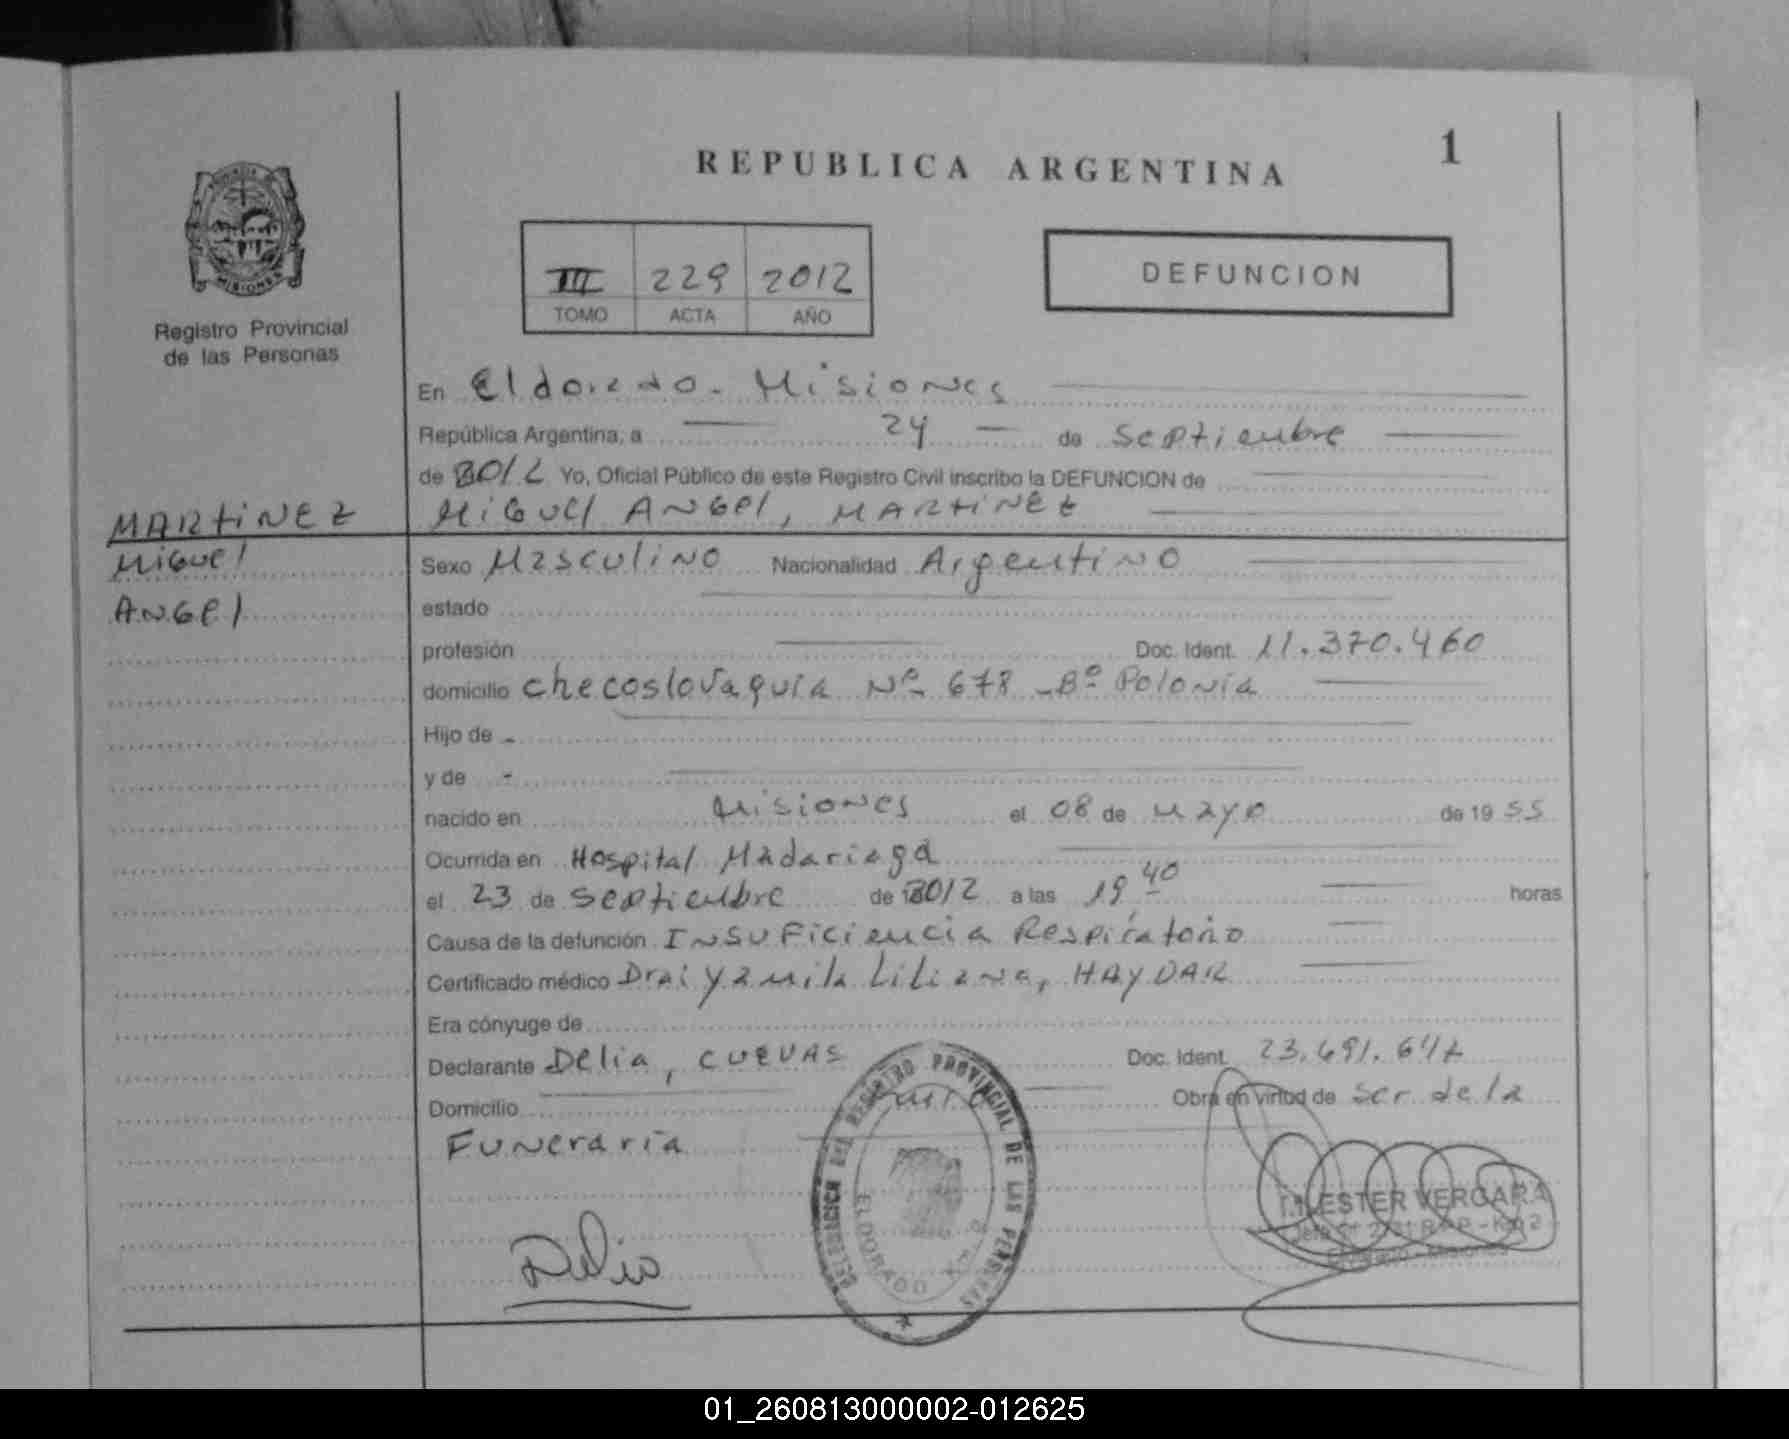 REPUBLICA ARGENTINA
1
PROVINCIA
MISIONES
Registro Provincial
de las Personas
III 229 2012
TOMO ACTA AÑO
DEFUNCION
En Eldorado - Misiones
República Argentina, a 24 de Septiembre
de 2012 Yo, Oficial Público de este Registro Civil inscribo la DEFUNCION de
Miguel Angel, MARTINEZ
MARTINEZ
Miguel
Angel
Sexo Masculino Nacionalidad Argentino
estado
profesión Doc. Ident. 11.370.460
domicilio checoslovaquia Nº 678 - Bº Polonia
Hijo de -
y de -
nacido en Misiones el 08 de Mayo de 1955
Ocurrida en Hospital Madariaga
el 23 de Septiembre de 2012 a las 19 40 horas
Causa de la defunción Insuficiencia Respiratorio
Certificado médico Dra: Yamila Liliana, HAYDAR
Era cónyuge de
Declarante Delia, CUEVAS Doc. Ident. 23.691.647
Domicilio Obra en virtud de Ser de la
Funeraria
DELEGACION DEL REGISTRO PROVINCIAL DE LAS PERSONAS
ELDORADO Km
Delia
ESTER VERGARA
01_260813000002-012625